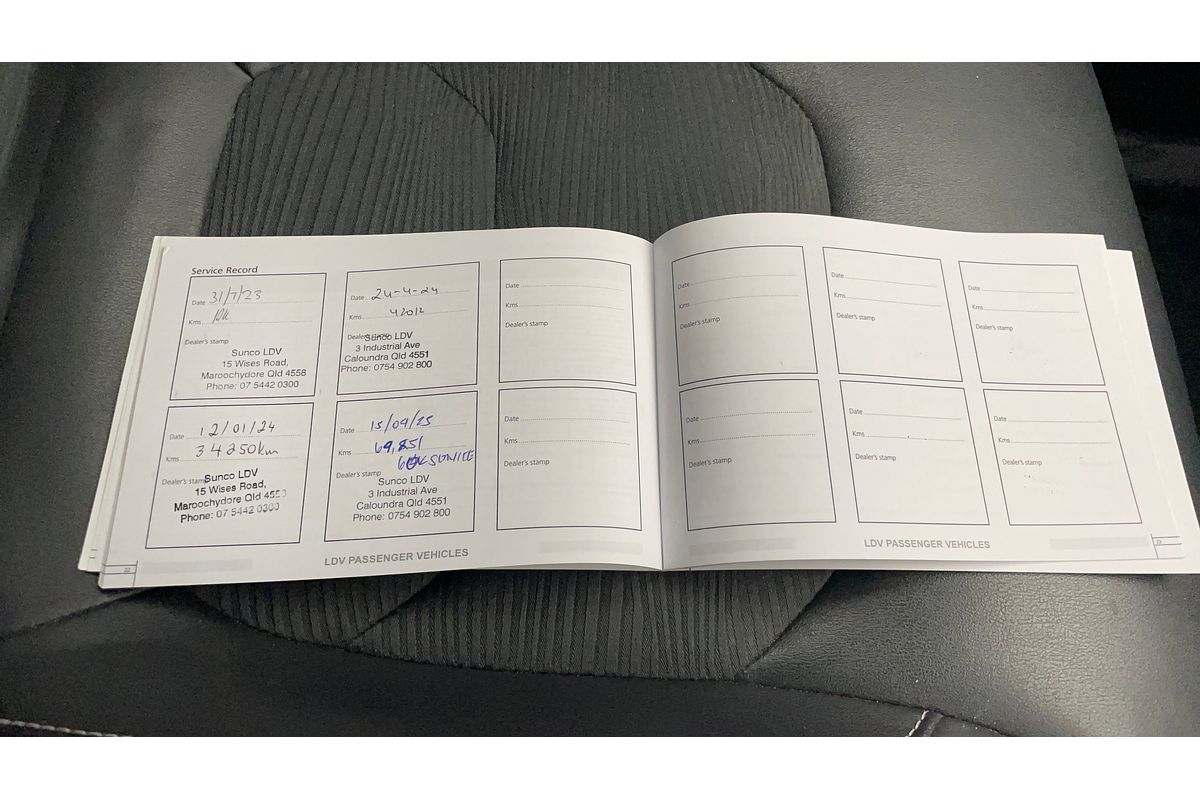 Service Record
Date 31/7/23
Kms
Dealer's stamp
Sunco LDV
15 Wises Road,
Maroochydore Qld 4558
Phone: 07 5442 0300
Date 12/01/24
Kms 34250km
Dealer's stamp
Sunco LDV
15 Wises Road,
Maroochydore Qld 455
Phone: 07 5442 0300
Date 24-4-24
Kms 42012
Dealer's stamp
Sunco LDV
3 Industrial Ave
Caloundra Qld 4551
Phone: 0754 902 800
Date 15/09/25
Kms 69,851
60K SERVICE
Dealer's stamp
Sunco LDV
3 Industrial Ave
Caloundra Qld 4551
Phone: 0754 902 800
Date
Kms
Dealer's stamp
Date
Kms
Dealer's stamp
22
LDV PASSENGER VEHICLES
Date
Kms
Dealer's stamp
Date
Kms
Dealer's stamp
Date
Kms
Dealer's stamp
Date
Kms
Dealer's stamp
Date
Kms
Dealer's stamp
Date
Kms
Dealer's stamp
LDV PASSENGER VEHICLES
23